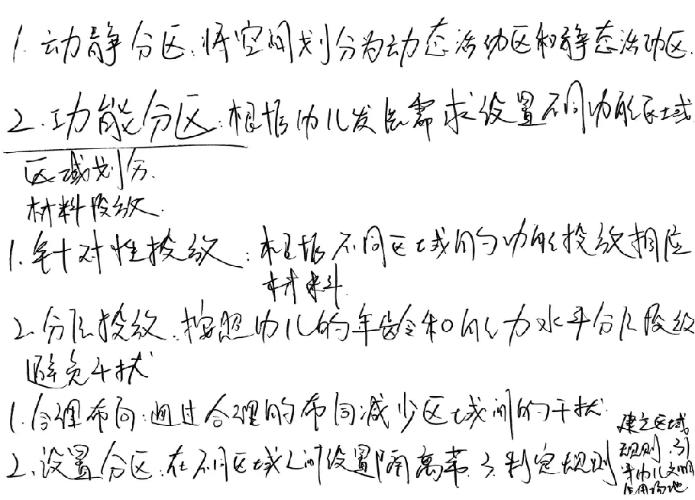 1. 动静分区：将空间划分为动态活动区和静态活动区.
2. 功能分区：根据幼儿发展需求设置不同功能区域
区域划分.
材料投放.
1. 针对性投放：根据不同区域的功能投放相应
材料
2. 分层投放：按照幼儿的年龄和能力水平分层投放
避免干扰
1. 合理布局：通过合理的布局减少区域间的干扰.
2. 设置分区：在不同区域之间设置隔离带. 3. 制定规则
建立区域
规则，引
导幼儿文明
使用场地